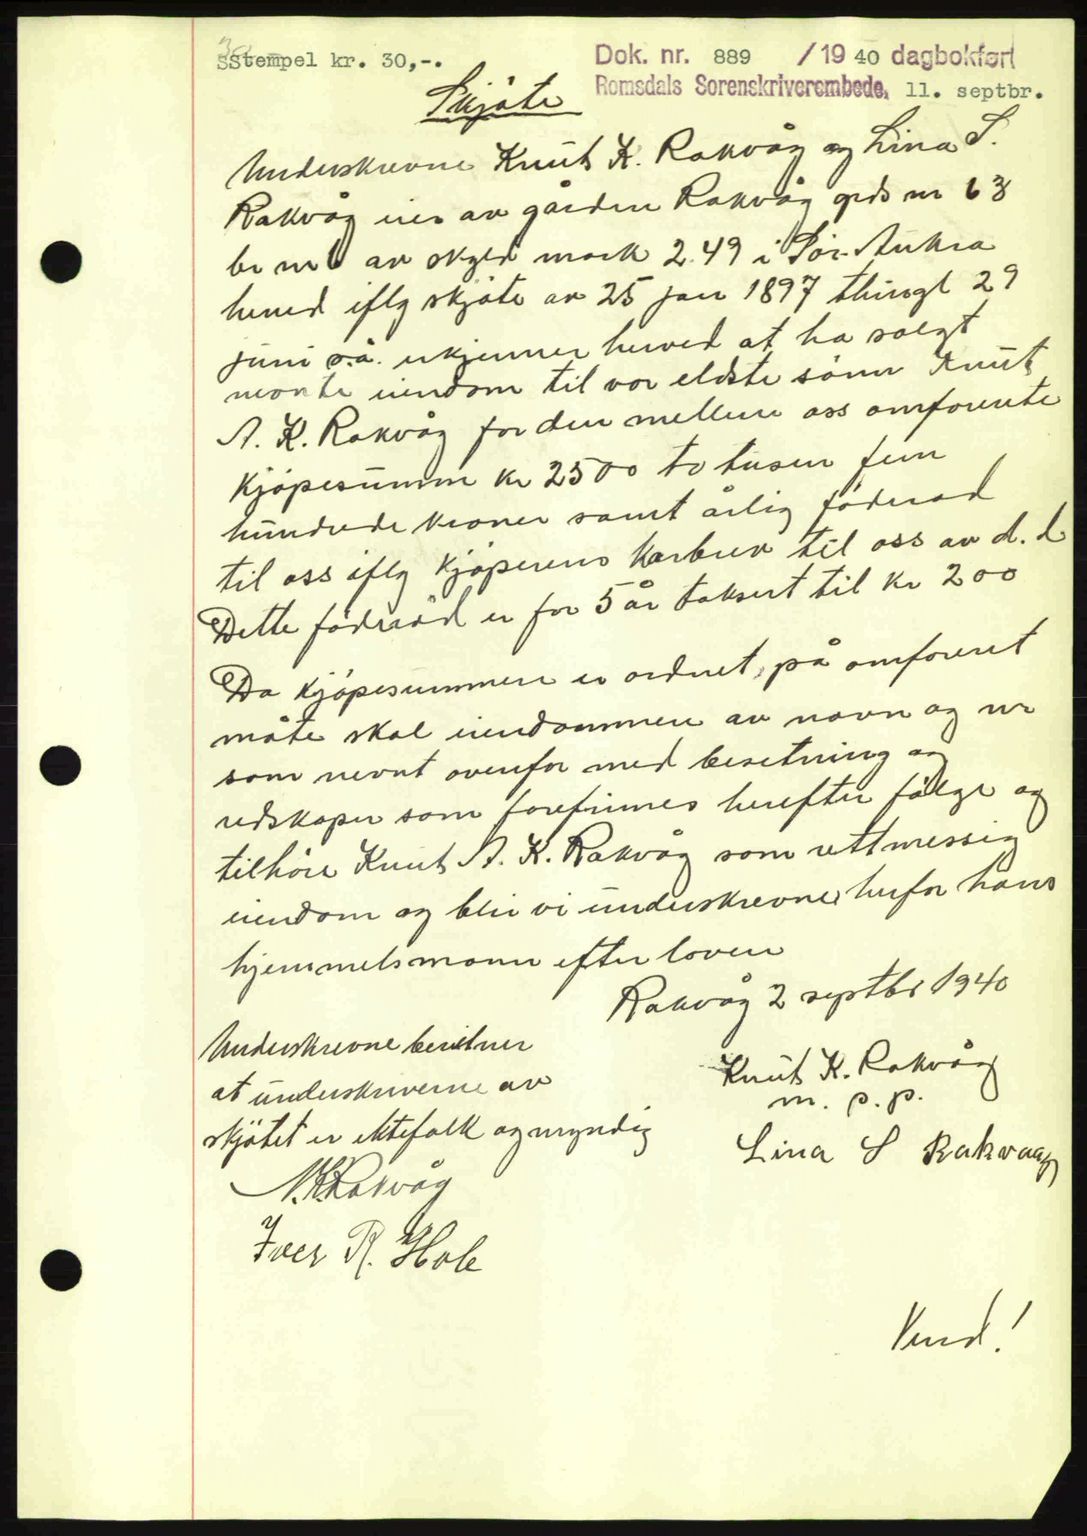 SStempel kr. 30,-.
Dok. nr. 889 / 19 40 dagbokført
Romsdals Sorenskriverembede, 11. septbr.
Skjöte
Underskrevne Knut K. Rakvåg og Lina S.
Rakvåg eier av gården Rakvåg grds nr 63
br nr 6 av skyld mark 2.49 i Sör-Aukra
hered iflg skjöte av 25 jan 1897 thingl 29
juni s.å. erkjenner herved at ha solgt
nevnte eiendom til vor eldste sönn Knut
A. K. Rakvåg for den mellem oss omforente
Kjöpesumm kr 2500 to tusen fem
hundrede kroner samt årlig föderåd
til oss iflg Kjöperens Karbrev til oss av d.d
Dette föderåd er for 5 år taksert til kr 200
Da Kjöpesummen er ordnet på omforenet
måte skal eiendommen av navn og nr
som nevnt ovenfor med besetning og
redskaper som forefinnes herefter fölge og
tilhöre Knut A. K. Rakvåg som rettmessig
eiendom og blir vi underskrevne herfor hans
hjemmelsmann efter loven
Rakvåg 2 septbr 1940
Underskrevne bevitner
at underskriverne av
skjötet er ektefolk og myndig
Knut K. Rakvåg
m. p. p.
Lina S Rakvaag
N.K.Rakvåg
Iver R. Hole
Vend!